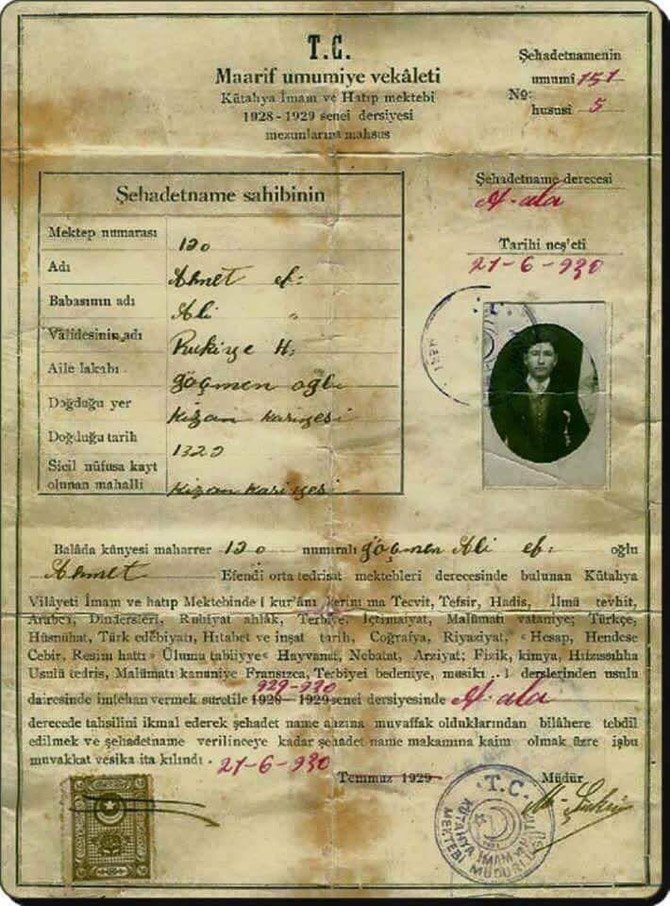 T.C.
Maarif umumiye vekâleti
Kütahya İmam ve Hatıp mektebi
1928-1929 senei dersiyesi
mezunlarına mahsus
Şehadetnamenin
umumi 151
No:
hususi 5
Şehadetname derecesi
A-ala
Tarihi neş'eti
21-6-930
Şehadetname sahibinin
Mektep numarası 120
Adı Ahmet ef:
Babasının adı Ali "
Validesinin adı Rukiye H:
Aile lakabı göçmen oğlu
Doğduğu yer Kizan Kariyesi
Doğduğu tarih 1320
Sicil nüfusa kayt
olunan mahalli Kizan Kariyesi
Balâda künyesi maharrer 120 numıralı göçmen Ali ef: oğlu
Ahmet Efendi orta tedrisat mektebleri derecesinde bulunan Kütahya
Vilâyeti İmam ve hatıp Mektebinde kur'ânı kerim ma Tecvit, Tefsir, Hadis, İlmü tevhit,
Arabcı, Dindersleri, Ruhiyat ahlâk, Terbiye, İçtimaiyat, Malûmatı vataniye; Türkçe,
Hüsnühat, Türk edebiyatı, Hitabet ve inşat tarih, Coğrafya, Riyaziyat, «Hesap, Hendese
Cebir, Resim hattı» Ülumu tabiiyye «Hayvanat, Nebatat, Arziyat; Fizik, kimya, Hıfzıssıhha
Usulü tedris, Malûmatı kanuniye Fransızca, Terbiyei bedeniye, musiki derslerinden usulu
929-930
dairesinde imtehan vermek suretile 1928-1929 senei dersiyesinde A-ala
derecede tahsilini ikmal ederek şehadet name ahzına muvaffak olduklarından bilâhere tebdil
edilmek ve şehadetname verilinceye kadar şehadet name makamına kaim olmak üzre işbu
muvakkat vesika ita kılındı. 21-6-930
Temmuz 1929 Müdür
T.C.
KÜTAHYA İMAM HATIP
MEKTEBİ MÜDÜRLÜĞÜ